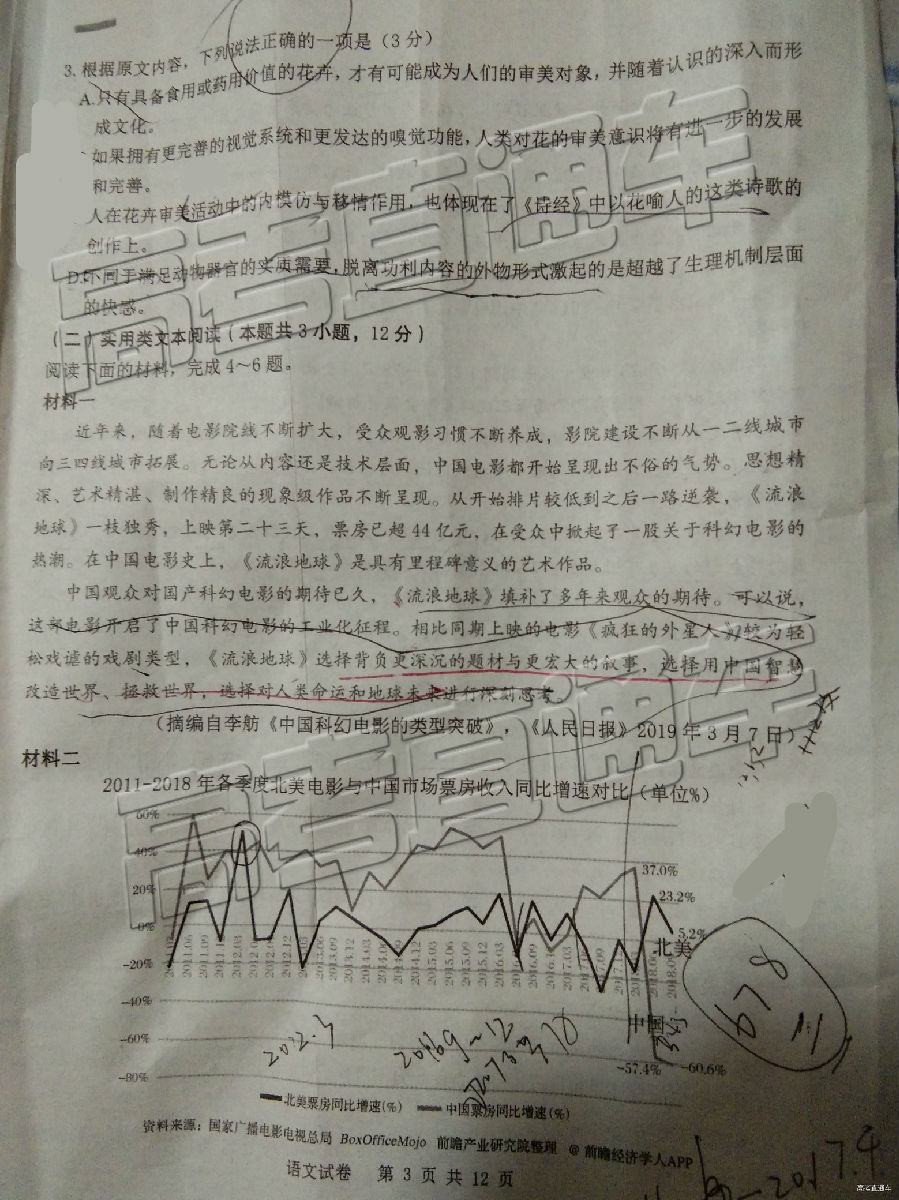 3. 根据原文内容，下列说法正确的一项是（3分）
A.只有具备食用或药用价值的花卉，才有可能成为人们的审美对象，并随着认识的深入而形
成文化。
如果拥有更完善的视觉系统和更发达的嗅觉功能，人类对花的审美意识将有进一步的发展
和完善。
人在花卉审美活动中的内模仿与移情作用，也体现在了《诗经》中以花喻人的这类诗歌的
创作上。
D.不同于满足动物器官的实质需要，脱离功利内容的外物形式激起的是超越了生理机制层面
的快感。
（二）实用类文本阅读（本题共3小题，12分）
阅读下面的材料，完成4～6题。
材料一
近年来，随着电影院线不断扩大，受众观影习惯不断养成，影院建设不断从一二线城市
向三四线城市拓展。无论从内容还是技术层面，中国电影都开始呈现出不俗的气势。思想精
深、艺术精湛、制作精良的现象级作品不断呈现。从开始排片较低到之后一路逆袭，《流浪
地球》一枝独秀，上映第二十三天，票房已超44亿元，在受众中掀起了一股关于科幻电影的
热潮。在中国电影史上，《流浪地球》是具有里程碑意义的艺术作品。
中国观众对国产科幻电影的期待已久，《流浪地球》填补了多年来观众的期待。可以说，
这部电影开启了中国科幻电影的工业化征程。相比同期上映的电影《疯狂的外星人》较为轻
松戏谑的戏剧类型，《流浪地球》选择背负更深沉的题材与更宏大的叙事，选择用中国智慧
改造世界、拯救世界，选择对人类命运和地球未来进行深刻思考。
（摘编自李舫《中国科幻电影的类型突破》，《人民日报》2019年3月7日）
材料二
2011-2018年各季度北美电影与中国市场票房收入同比增速对比（单位%）
60%
40%
20%
0%
-20%
-40%
-60%
-80%
2011.06
2011.09
2012.03
2012.12
2013.06
2013.09
2013.12
2014.03
2014.06
2014.12
2015.03
2015.06
2015.09
2015.12
2016.09
2016.12
2017.03
37.0%
23.2%
5.2%
北美
中国
-57.4%
-60.6%
2012.3
678
北美票房同比增速(%) 中国票房同比增速(%)
资料来源：国家广播电影电视总局 BoxOfficeMojo 前瞻产业研究院整理 @前瞻经济学人APP
语文试卷 第 3 页 共 12 页
高考直通车
高考直通车
高考直通车